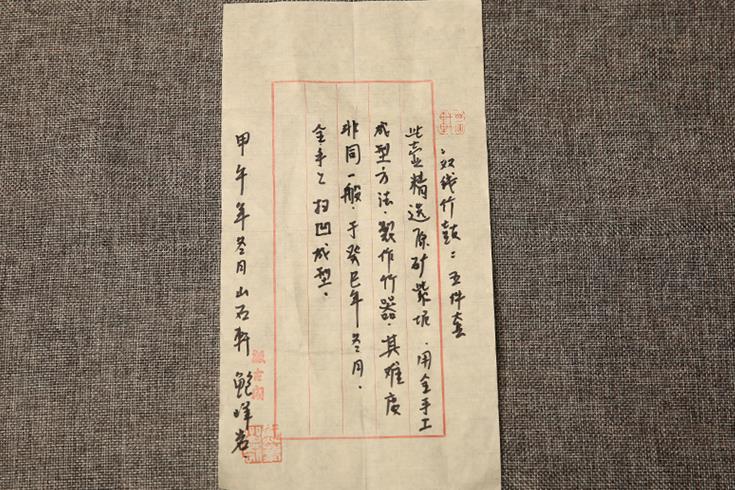 双线竹鼓：五件套
此壶精选原矿紫坭．用全手工
成型方法．製作竹器．其难度
非同一般．于癸巳年冬月．
全手工 扫凹成型．
甲午年冬月山石軒 鲍峰岩